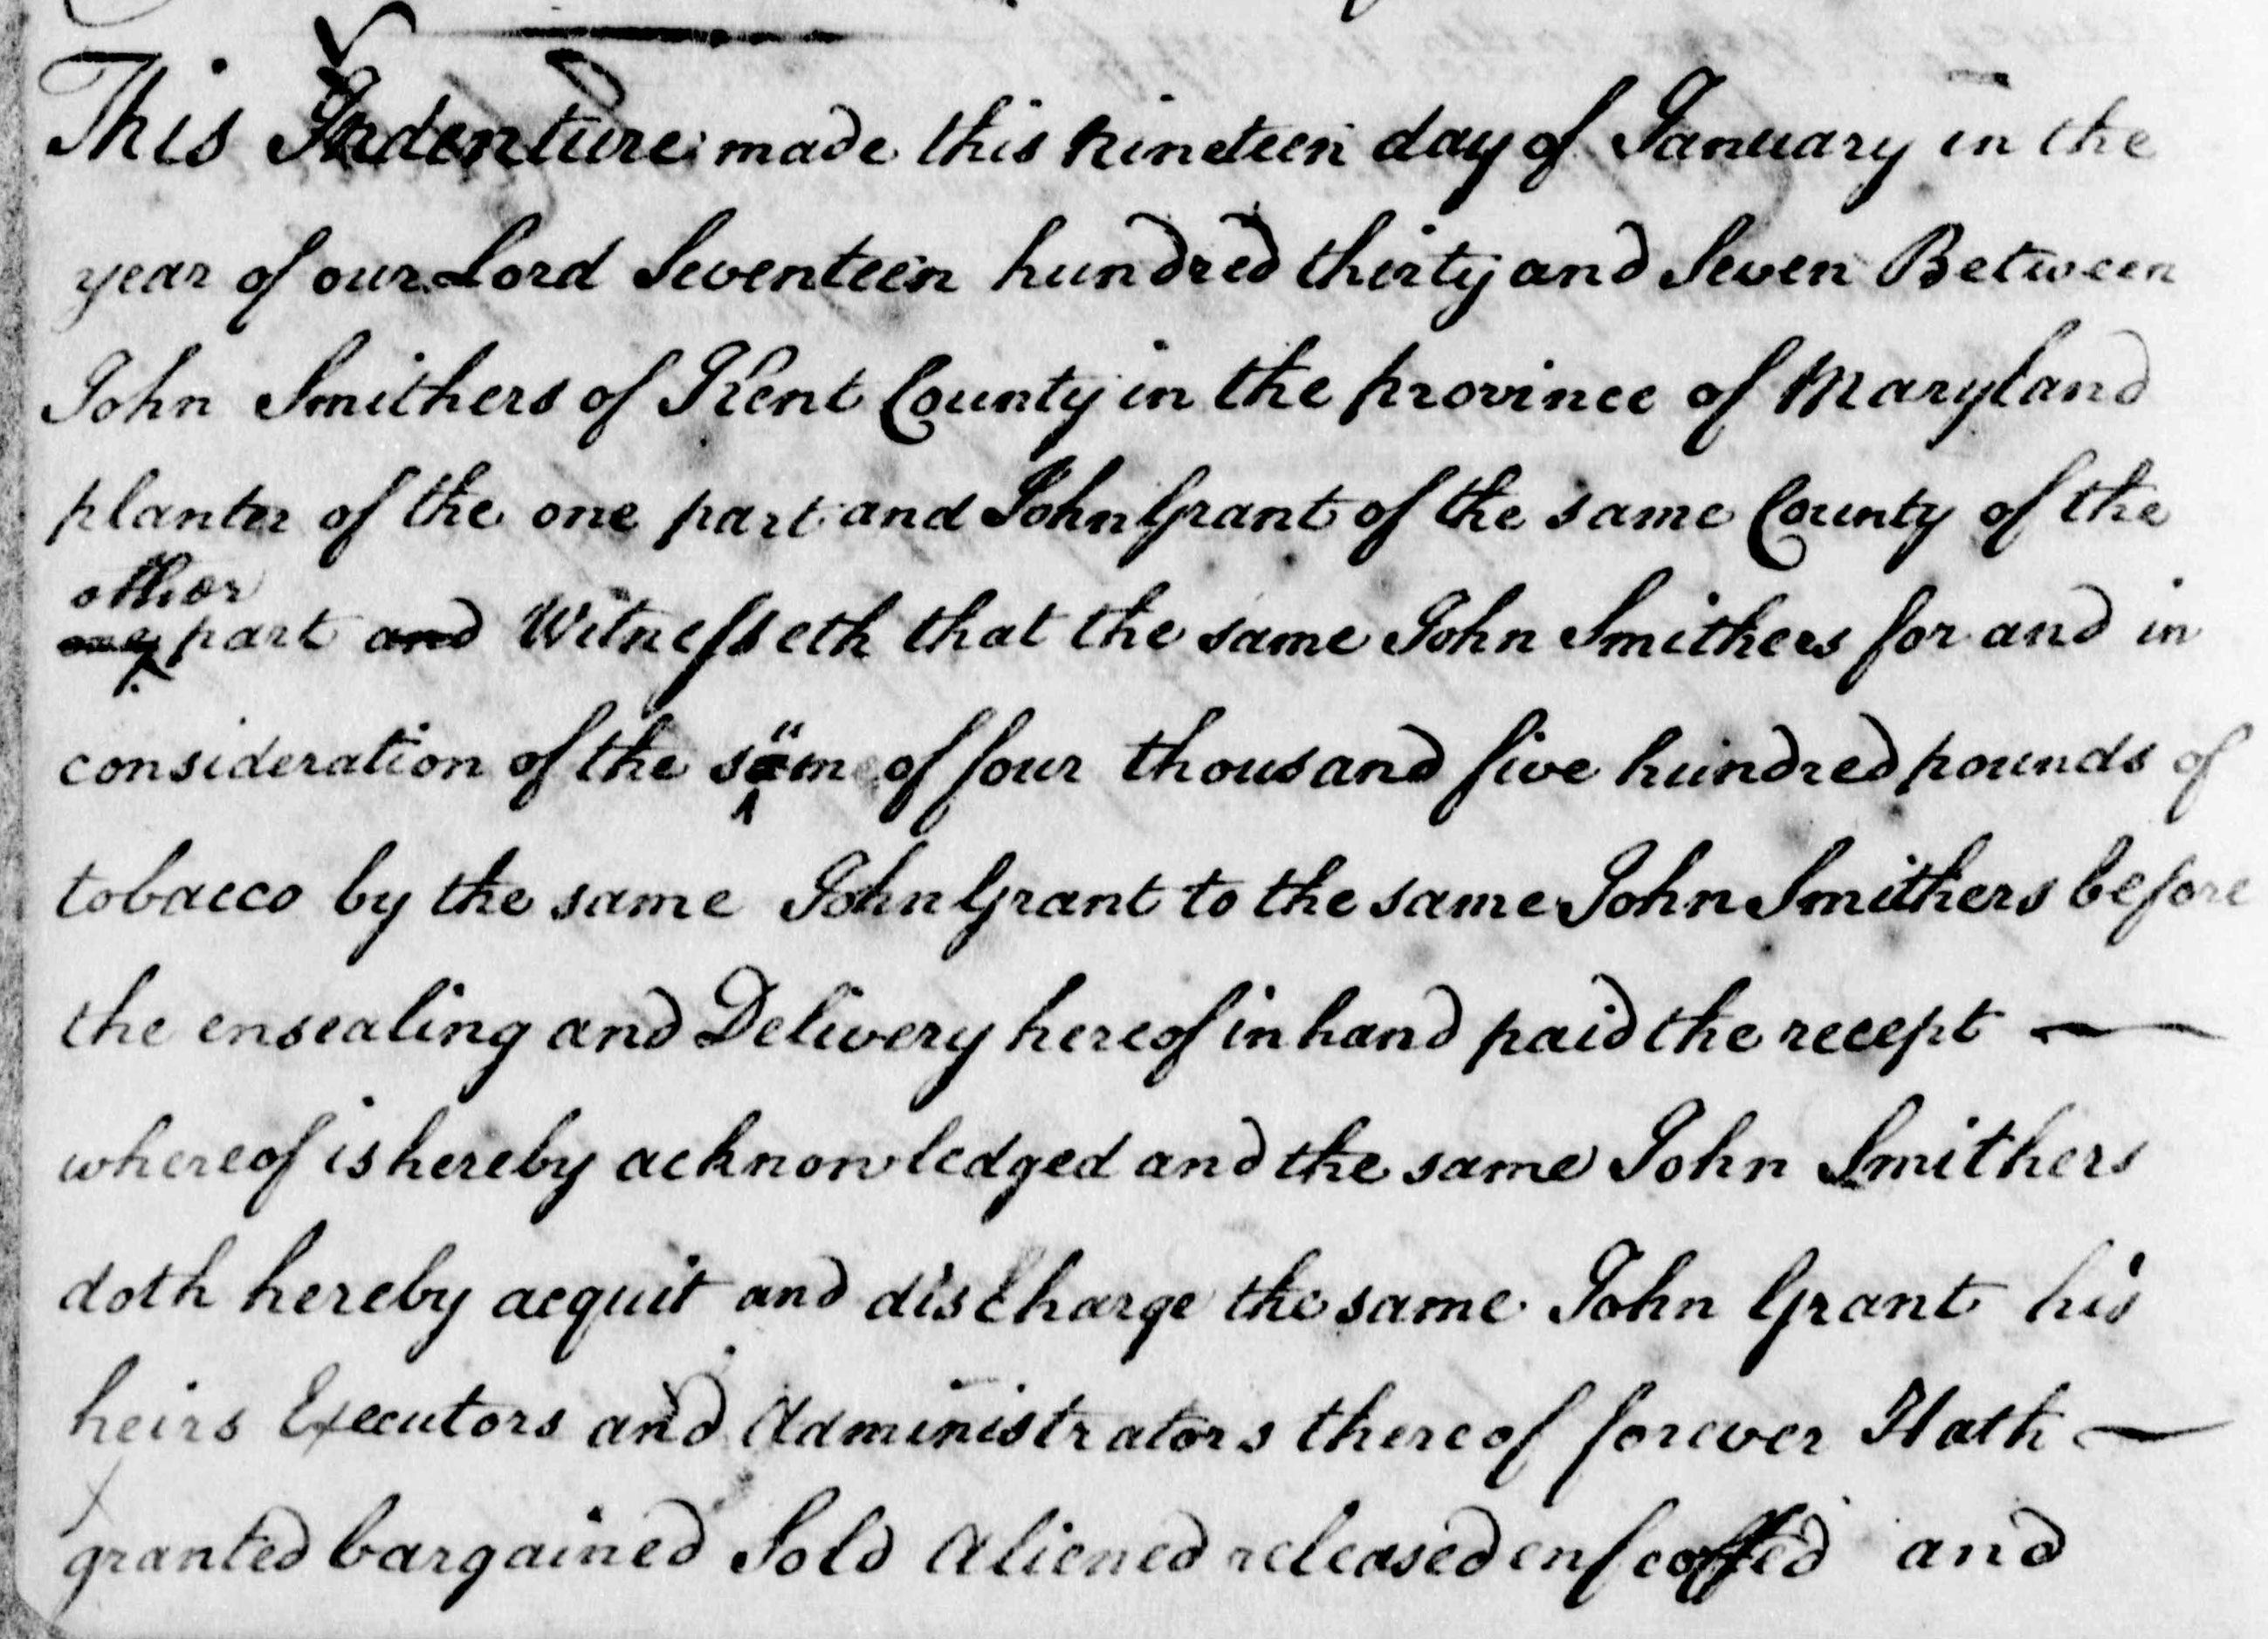 This Indenture made this nineteen day of January in the
year of our Lord Seventeen hundred thirty and Seven Between
John Smithers of Kent County in the province of Maryland
planter of the one part and John Grant of the same County of the
other
one part and Witnesseth that the same John Smithers for and in
consideration of the sum of four thousand five hundred pounds of
tobacco by the same John Grant to the same John Smithers before
the ensealing and Delivery hereof in hand paid the recept —
whereof is hereby acknowledged and the same John Smithers
doth hereby acquit and discharge the same John Grant his
heirs Executors and Administrators thereof forever Hath —
granted bargained Sold Aliened released enfeoffed and